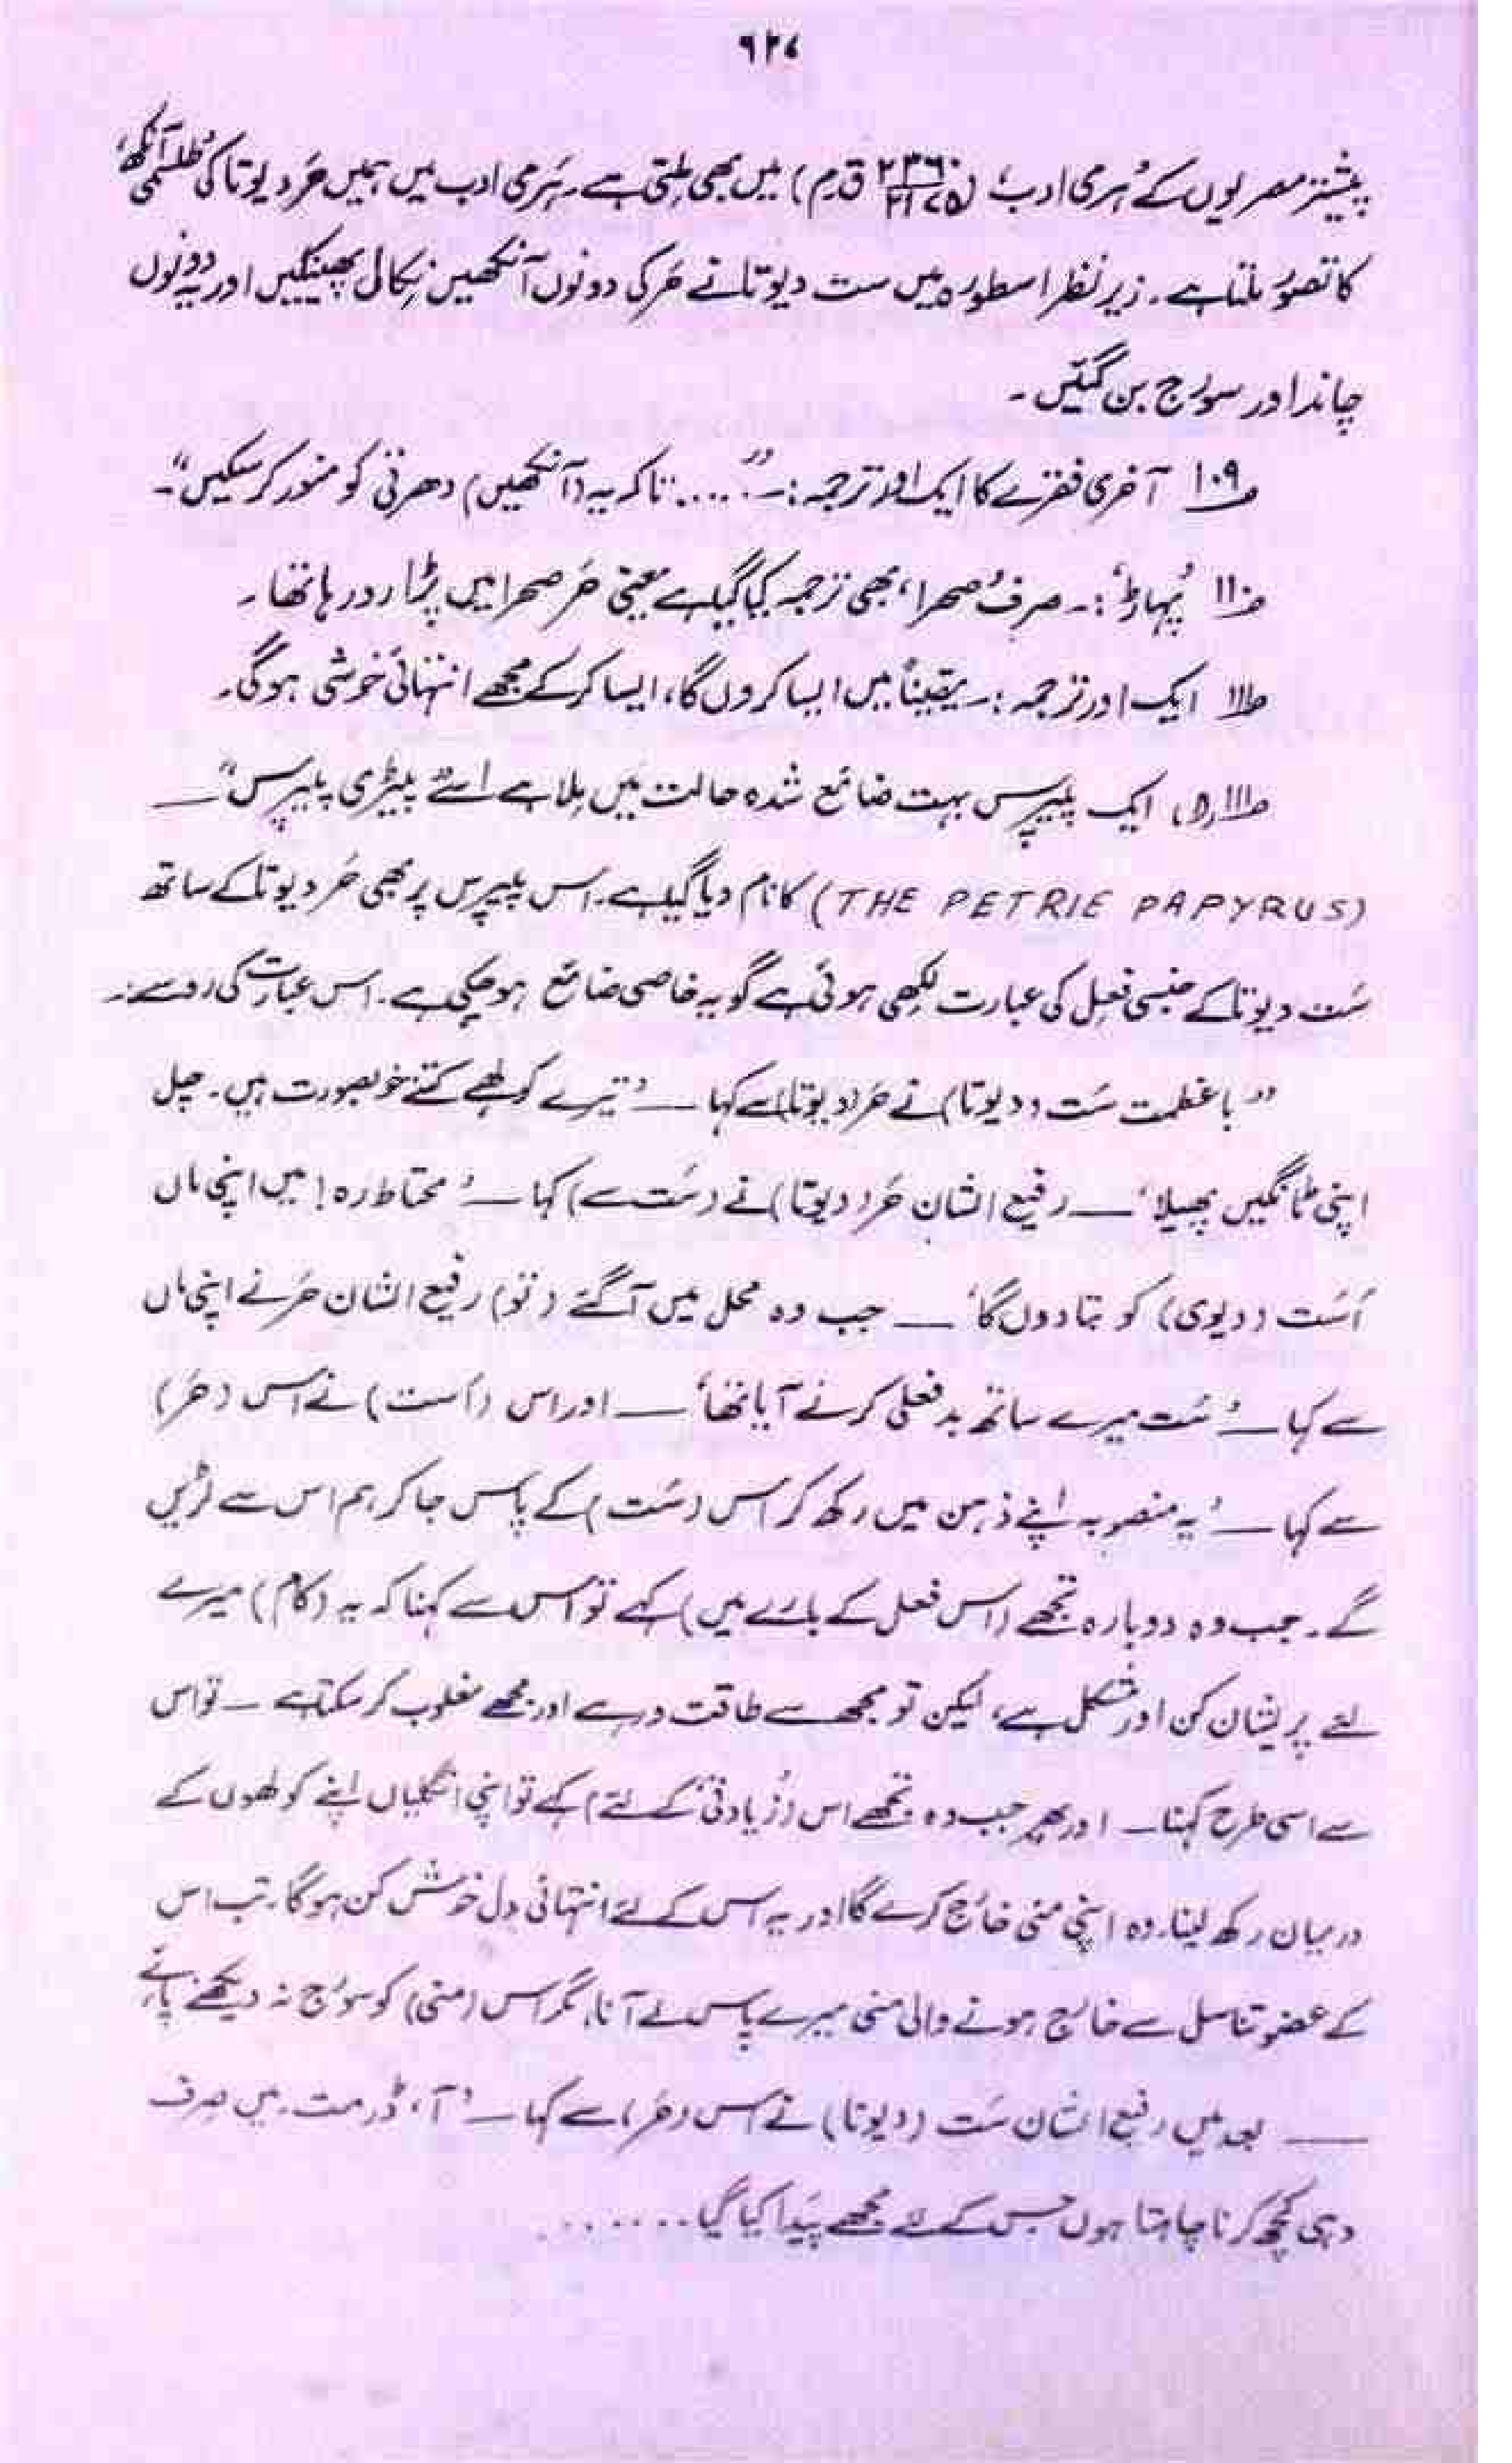 ۹۲۷
پیشتر مصریوں کے ’ہرمی ادب‘ (۲۳۶۰/۲۱۷۵ ق م) میں بھی ملتی ہے۔ ہَرمی ادب میں ہمیں حَر دیوتا کی ’طلسمی آنکھ‘
کا تصوّر ملتا ہے۔ زیرِ نظر اسطورہ میں ست دیوتا نے حَر کی دونوں آنکھیں نکال پھینکیں اور یہ دونوں
چاند اور سورج بن گئیں۔
۱۰۹ آخری فقرے کا ایک اور ترجمہ :۔ ”..... تاکہ یہ (آنکھیں) دھرتی کو منور کر سکیں“۔
۱۱۰ ’پہاڑ‘ :۔ صرف ’صحرا‘ بھی ترجمہ کیا گیا ہے یعنی حَر صحرا میں پڑا رو رہا تھا۔
۱۱۱ ایک اور ترجمہ :۔ یقیناً میں ایسا کروں گا، ایسا کر کے مجھے انتہائی خوشی ہوگی۔
ایک پیپرس بہت ضائع شدہ حالت میں ملا ہے اسے ”پیٹری پیپرس“ —
(THE PETRIE PAPYRUS) کا نام دیا گیا ہے۔ اس پیپرس پر بھی حَر دیوتا کے ساتھ
سَت دیوتا کے جنسی فعل کی عبارت لکھی ہوئی ہے گو یہ خاصی ضائع ہو چکی ہے۔ اس عبارت کی رو سے :۔
”باعظمت سَت (دیوتا) نے حَر (دیوتا) سے کہا — ’تیرے کولھے کتنے خوبصورت ہیں۔ چل
اپنی ٹانگیں پھیلا‘ — رفیع الشان حَر (دیوتا) نے (سَت سے) کہا — ’محتاط رہ! میں اپنی ماں
اَسَت (دیوی) کو بتا دوں گا‘ — جب وہ محل میں آگئے (تو) رفیع الشان حَر نے اپنی ماں
سے کہا — ’سَت میرے ساتھ بدفعلی کرنے آیا تھا‘ — اور اس (اَست) نے اس (حَر)
سے کہا — ’یہ منصوبہ اپنے ذہن میں رکھ کر اس (سَت) کے پاس جا کر ہم اس سے لڑیں
گے۔ جب وہ دوبارہ تجھے (اس فعل کے بارے میں) کہے تو اس سے کہنا کہ یہ (کام) میرے
لئے پریشان کن اور مشکل ہے، لیکن تو مجھ سے طاقت ور ہے اور مجھے مغلوب کر سکتا ہے — تو اس
سے اسی طرح کہنا — اور پھر جب وہ تجھے اس (’زیادتی‘ کے لئے) کہے تو اپنی انگلیاں اپنے کولھوں کے
درمیان رکھ لینا۔ وہ اپنی منی خارج کرے گا اور یہ اس کے لئے انتہائی دل خوش کن ہوگا۔ تب اس
کے عضو تناسل سے خارج ہونے والی منی میرے پاس لے آنا، مگر اس (منی) کو سورج نہ دیکھنے پائے،
— بعد میں رفیع الشان سَت (دیوتا) نے اس (حَر) سے کہا — ’آ، ڈر مت۔ میں صرف
وہی کچھ کرنا چاہتا ہوں جس کے لئے مجھے پیدا کیا گیا .......